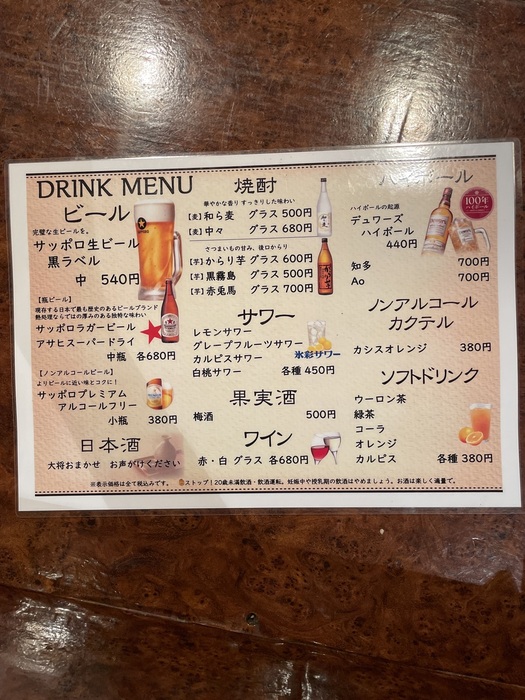 DRINK MENU
ビール
完璧な生ビールを。
サッポロ生ビール
黒ラベル
中 540円
【瓶ビール】
現存する日本で最も歴史のあるビールブランド
熱処理ならではの厚みのある独特な味わい
サッポロラガービール
アサヒスーパードライ
中瓶 各680円
【ノンアルコールビール】
よりビールに近い味とコクに!
サッポロプレミアム
アルコールフリー
小瓶 380円
日本酒
大将おまかせ お声がけください
焼酎
華やかな香り すっきりした味わい
【麦】和ら麦 グラス 500円
【麦】中々 グラス 680円
さつまいもの甘み、後口からり
【芋】からり芋 グラス 600円
【芋】黒霧島 グラス 500円
【芋】赤兎馬 グラス 700円
サワー
レモンサワー
グレープフルーツサワー
カルピスサワー
白桃サワー 各種 450円
氷彩サワー
果実酒
梅酒 500円
ワイン
赤・白 グラス 各680円
ハイボール
ハイボールの起源
デュワーズ
ハイボール
440円
100年
ハイボール
知多 700円
Ao 700円
ノンアルコール
カクテル
カシスオレンジ 380円
ソフトドリンク
ウーロン茶
緑茶
コーラ
オレンジ
カルピス 各種 380円
※表示価格は全て税込みです。 ストップ!20歳未満飲酒・飲酒運転。妊娠中や授乳期の飲酒はやめましょう。お酒は楽しく適量で。